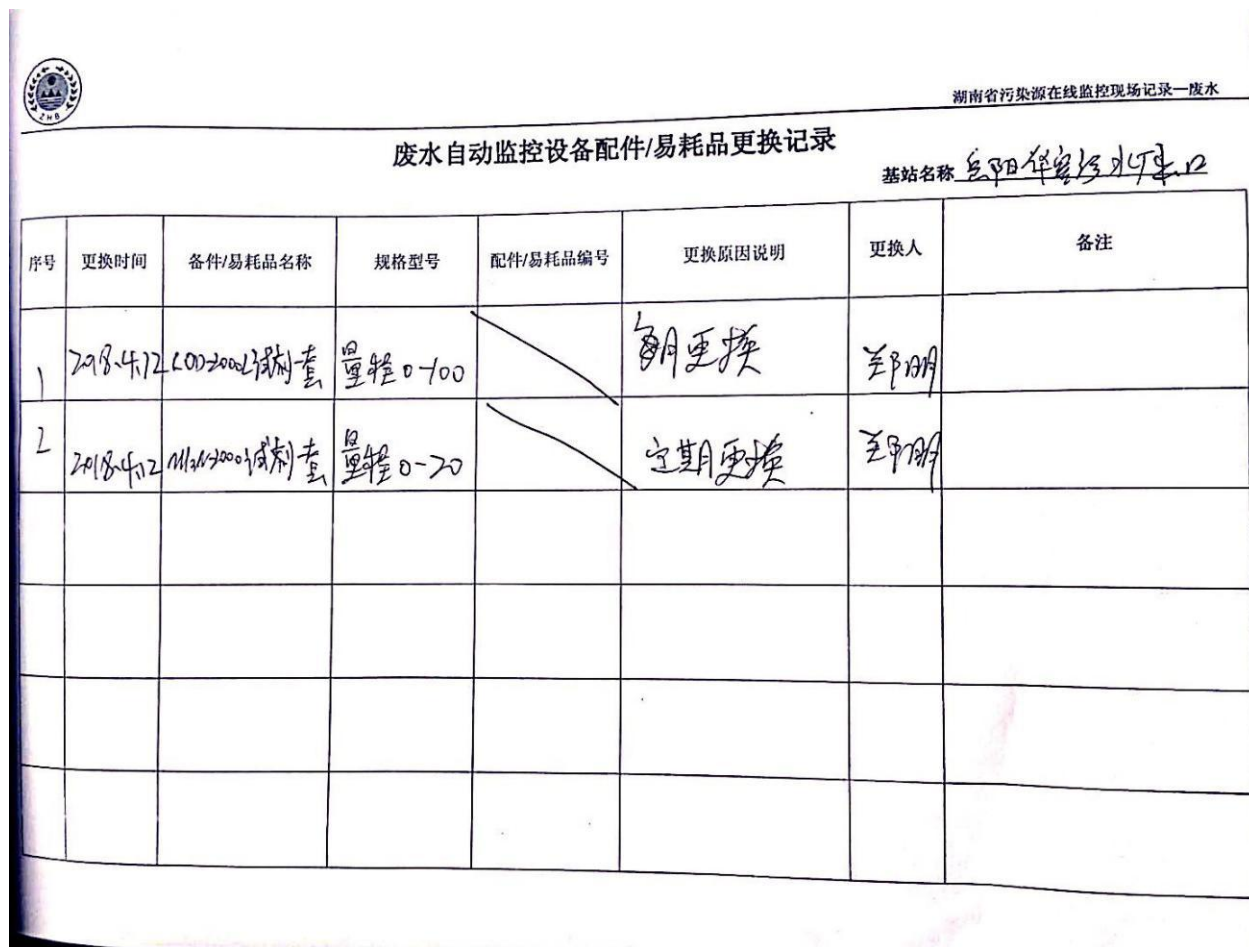 ZHB
湖南省污染源在线监控现场记录—废水
废水自动监控设备配件/易耗品更换记录
基站名称 岳阳华容污水厂出口
序号 更换时间 备件/易耗品名称 规格型号 配件/易耗品编号 更换原因说明 更换人 备注
1 2018.4.12 COD-2000L试剂一套 量程0-100 每月更换
2 2018.4.12 NH3N-2000试剂一套 量程0-20 定期更换